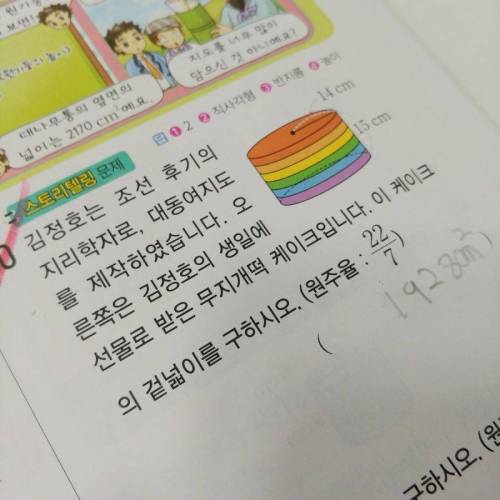 보면!
지도를 너무 많이
담으신 것 아니에요?
대나무통의 옆면의
넓이는 2170 cm²예요.
답 ❶ 2 ❷ 직사각형 ❸ 반지름 ❹ 높이
14 cm
15 cm
스토리텔링 문제
김정호는 조선 후기의
지리학자로, 대동여지도
를 제작하였습니다. 오
른쪽은 김정호의 생일에
선물로 받은 무지개떡 케이크입니다. 이 케이크
의 겉넓이를 구하시오. (원주율 : 22/7)
( 1928cm² )
구하시오. (원